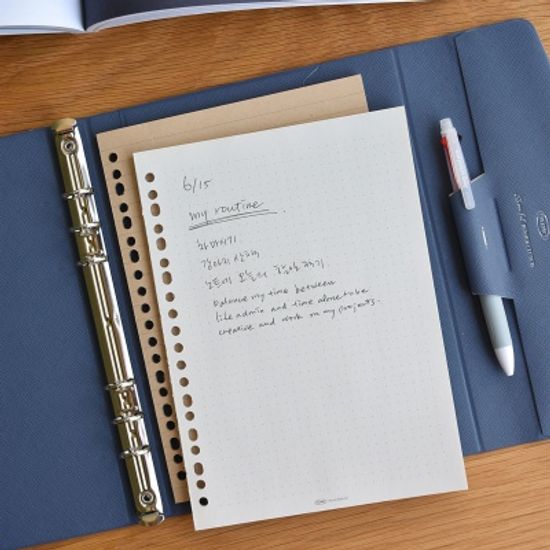 6/15
my routine.
차 마시기
강아지 산책
노트에 오늘의 할일 적기.
balance my time between
life admin and time alone to be
creative and work on my projects.